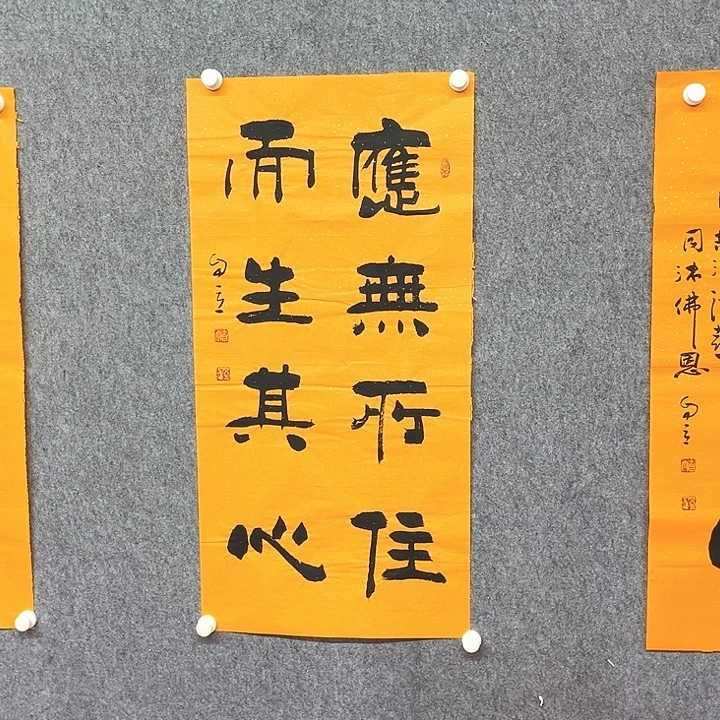 應無所住
而生其心
同沐佛恩